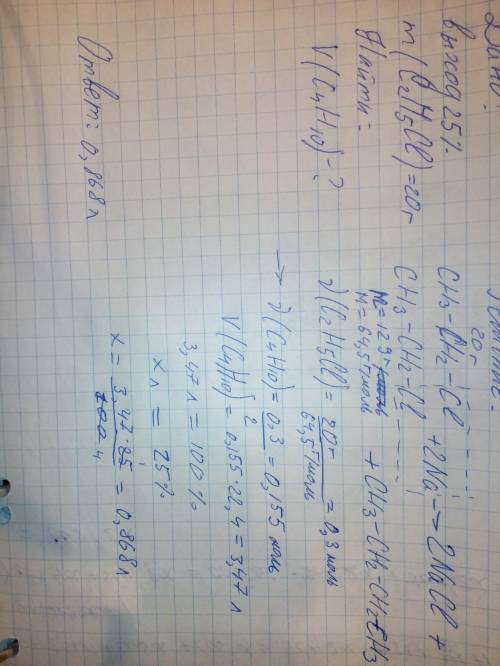 Дано:
выход 25%
m(C2H5Cl)=20г
Найти:
V(C4H10)-?
20г
CH3-CH2-Cl +2Na→2NaCl+
CH3-CH2-Cl
+ CH3-CH2-CH2-CH3
M=64,5г/моль
ν(C2H5Cl)= 20г / 64,5г/моль =0,3 моль
→ ν(C4H10)= 0,3 / 2 = 0,155 моль
V(C4H10)= 0,155·22,4=3,47л
3,47л = 100%
xл = 25%
x= 3,47·25 / 100 = 0,868л
Ответ: 0,868л